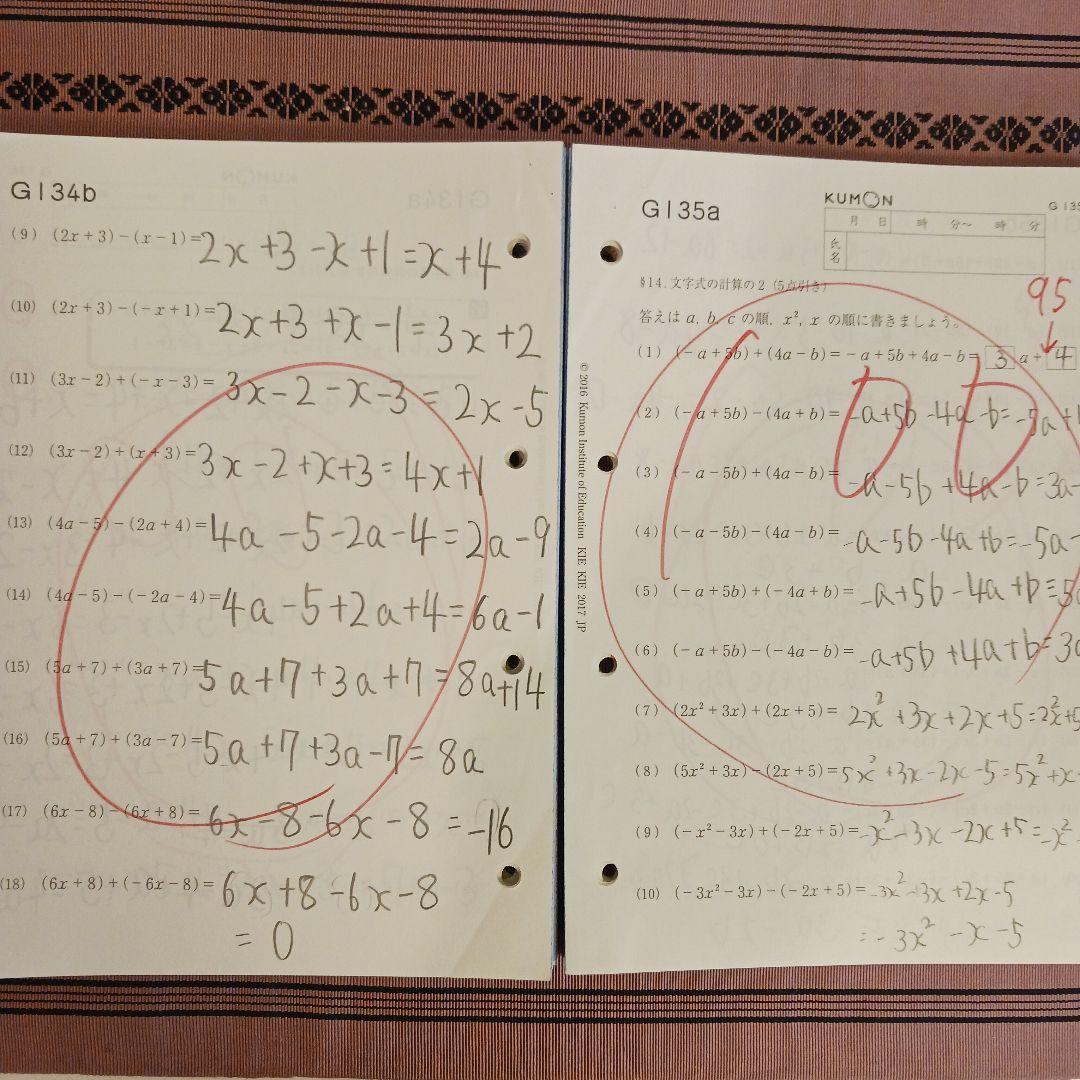 G134b
(9) (2x+3)-(x-1)=2x+3-x+1=x+4
(10) (2x+3)-(-x+1)=2x+3+x-1=3x+2
(11) (3x-2)+(-x-3)=3x-2-x-3=2x-5
(12) (3x-2)+(x+3)=3x-2+x+3=4x+1
(13) (4a-5)-(2a+4)=4a-5-2a-4=2a-9
(14) (4a-5)-(-2a-4)=4a-5+2a+4=6a-1
(15) (5a+7)+(3a+7)=5a+7+3a+7=8a+14
(16) (5a+7)+(3a-7)=5a+7+3a-7=8a
(17) (6x-8)-(6x+8)=6x-8-6x-8=-16
(18) (6x+8)+(-6x-8)=6x+8-6x-8
=0
G135a
KUMON
G135
月 日 時 分〜 時 分
氏名
§14.文字式の計算の2(5点引き)
95
答えは a, b, c の順, x², x の順に書きましょう。
100
(1) (-a+5b)+(4a-b)=-a+5b+4a-b=3a+4
(2) (-a+5b)-(4a+b)=-a+5b-4a-b=-5a+
(3) (-a-5b)+(4a-b)=-a-5b+4a-b=3a-
(4) (-a-5b)-(4a-b)=-a-5b-4a+b=-5a-
(5) (-a+5b)+(-4a+b)=-a+5b-4a+b=5a
(6) (-a+5b)-(-4a-b)=-a+5b+4a+b=3a
(7) (2x²+3x)+(2x+5)=2x²+3x+2x+5=2x²+5
(8) (5x²+3x)-(2x+5)=5x²+3x-2x-5=5x²+x-
(9) (-x²-3x)+(-2x+5)=-x²-3x-2x+5=-x²-
(10) (-3x²-3x)-(-2x+5)=-3x²-3x+2x-5
=-3x²-x-5
© 2016 Kumon Institute of Education KIE KIE 2017 JP